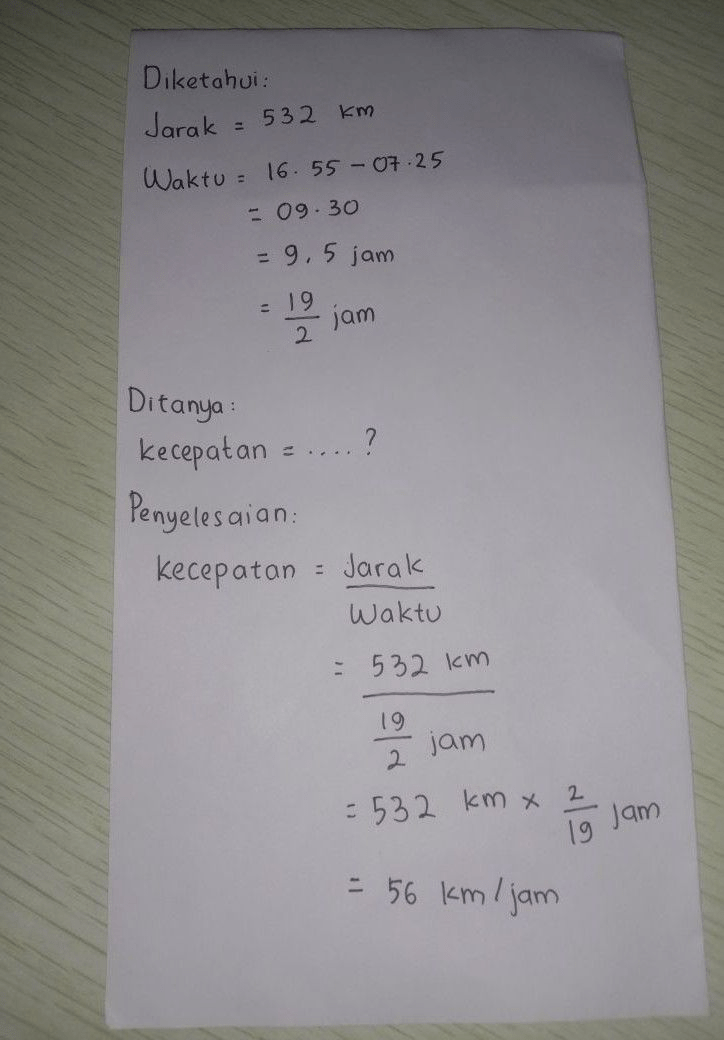 Diketahui:
Jarak = 532 km
Waktu = 16.55 - 07.25
= 09.30
= 9,5 jam
= 19/2 jam
Ditanya:
kecepatan = ....?
Penyelesaian:
kecepatan = Jarak/Waktu
= 532 km / 19/2 jam
= 532 km × 2/19 jam
= 56 km/jam